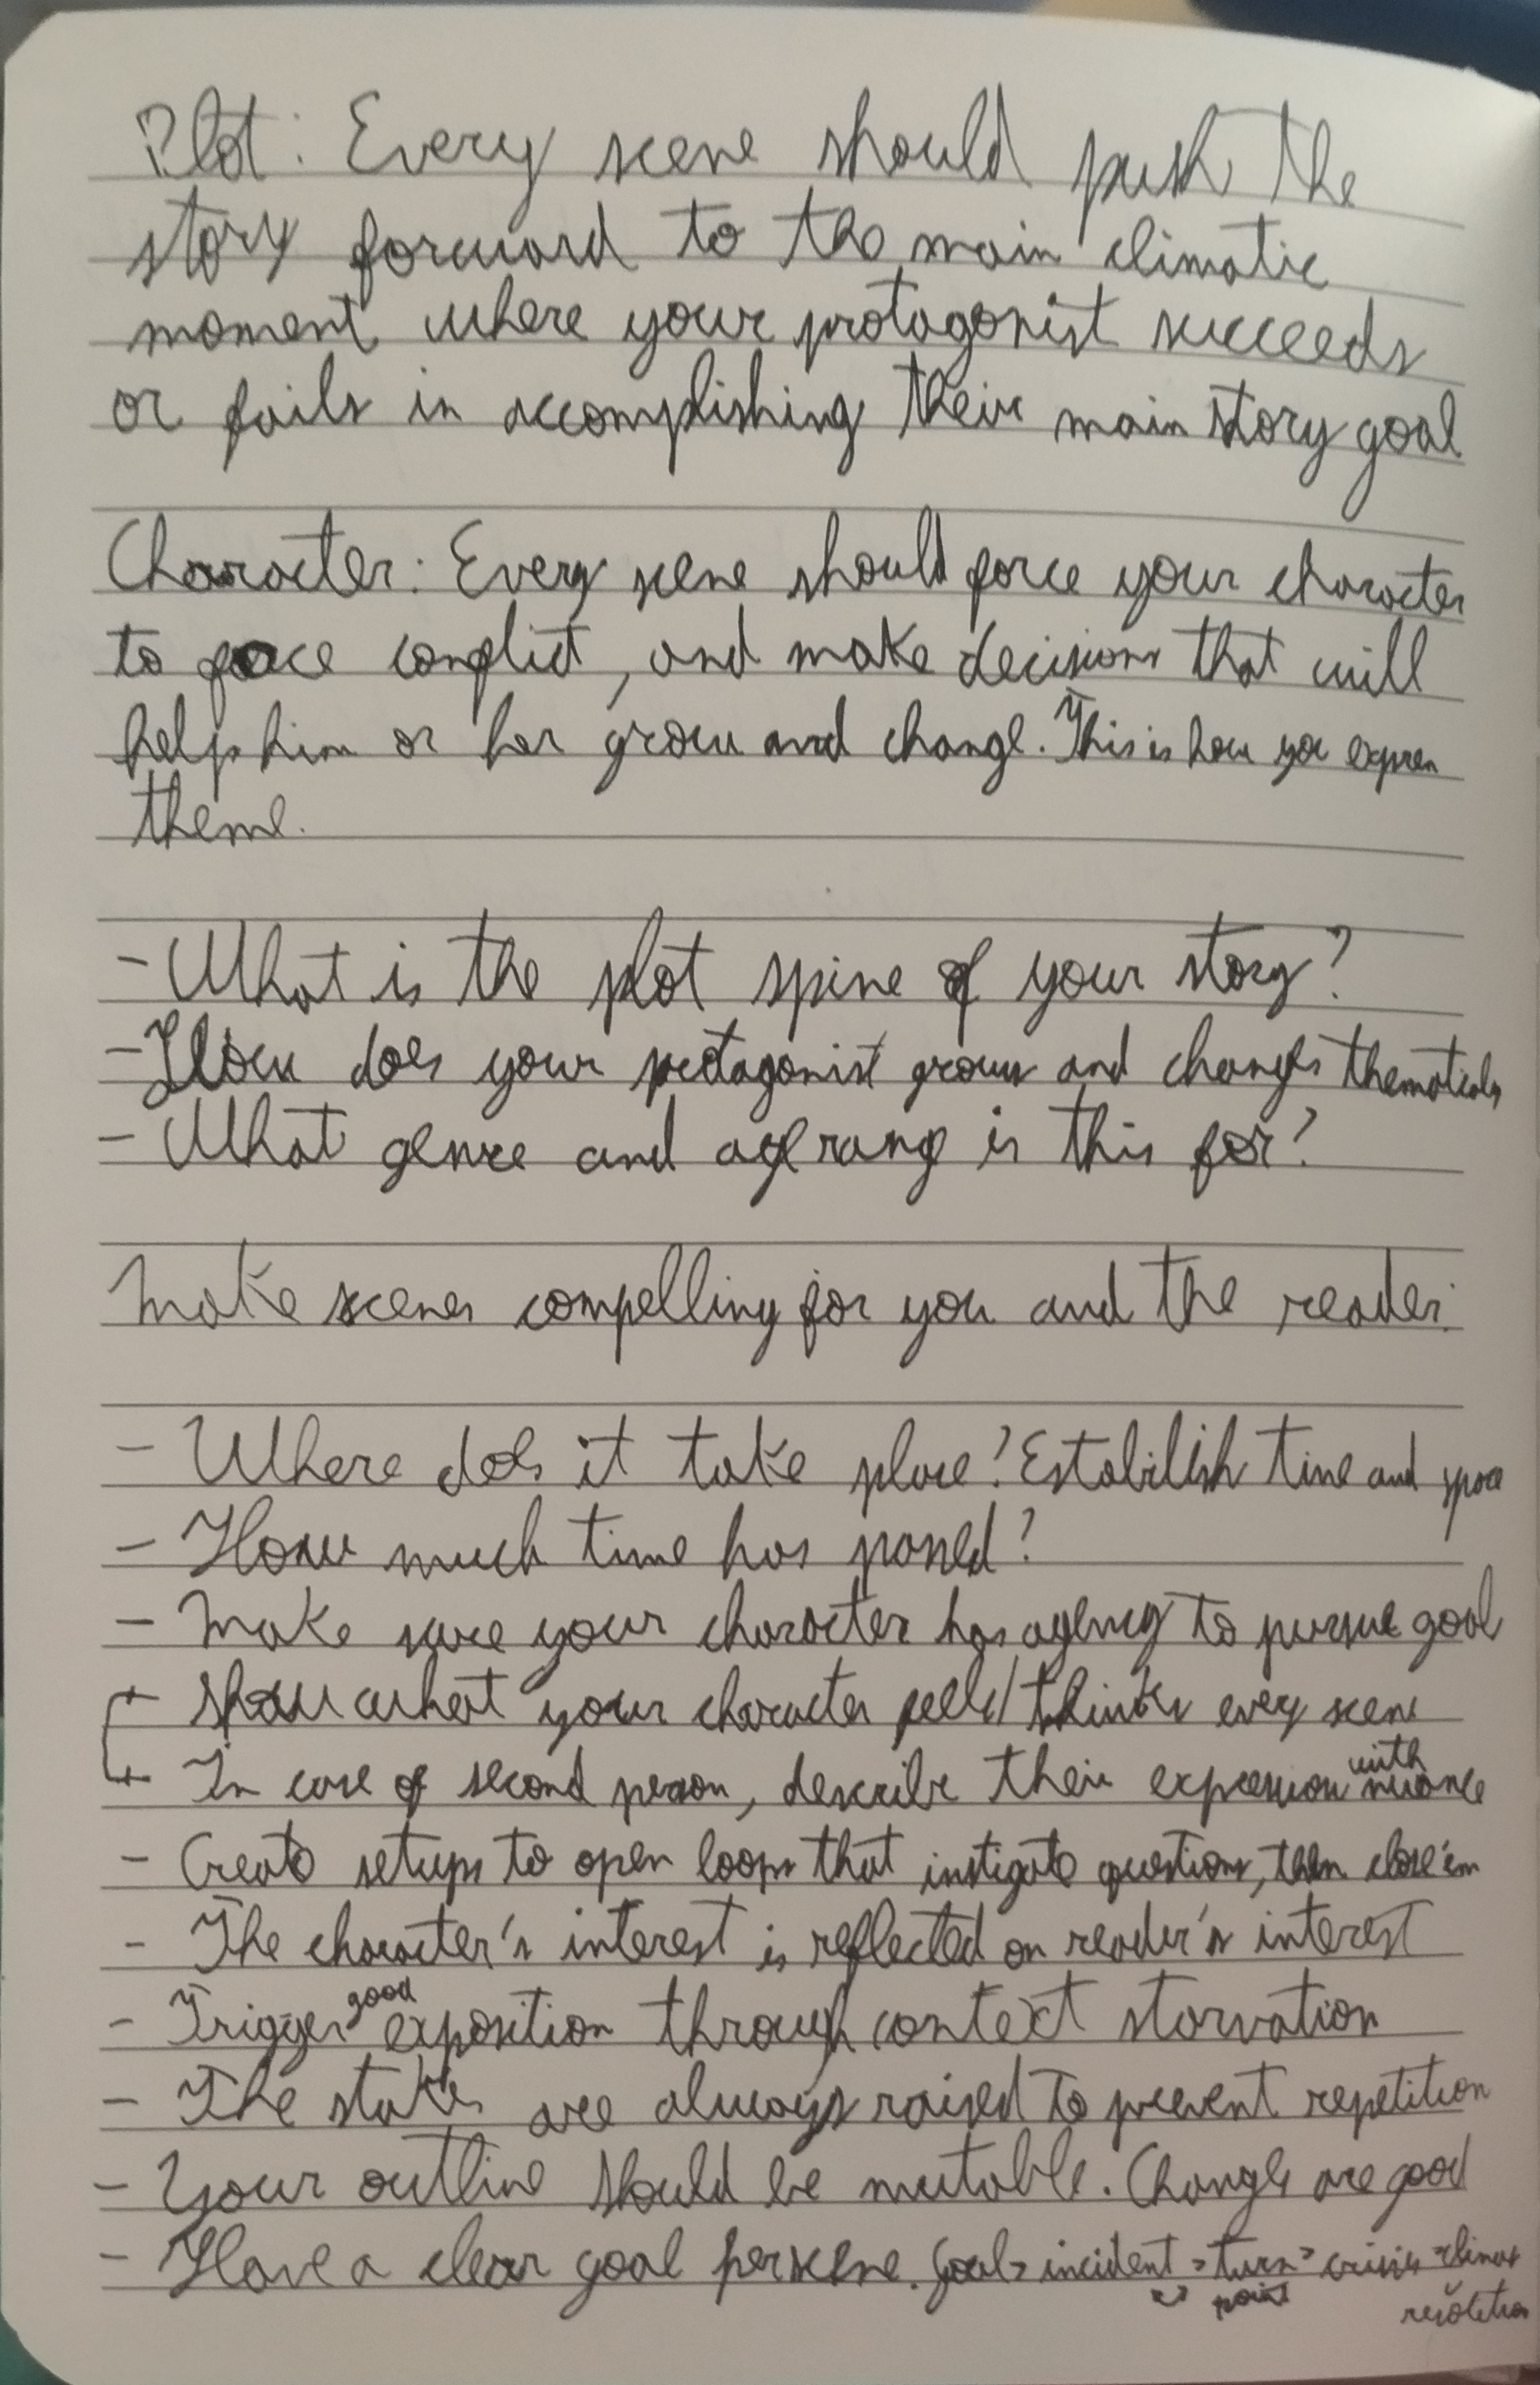 Plot: Every scene should push the
story forward to the main climatic
moment where your protagonist succeeds
or fails in accomplishing their main story goal
Character: Every scene should force your character
to face conflict, and make decisions that will
help him or her grow and change. This is how you express
theme.
- What is the plot spine of your story?
- How does your protagonist grows and changes thematically
- What genre and age range is this for?
Make scenes compelling for you and the reader.
- Where does it take place? Establish time and space
- How much time has passed?
- Make sure your character has agency to pursue goal
- Show what your character feels/thinks every scene
- In case of second person, describe their expression with nuance
- Create setups to open loops that instigate questions, then close 'em
- The character's interest is reflected on reader's interest
- Trigger good exposition through context starvation
- The stakes are always raised to prevent repetition
- Your outline should be mutable. Changes are good
- Have a clear goal per scene. Goal > incident > turn > crisis > climax
point resolution